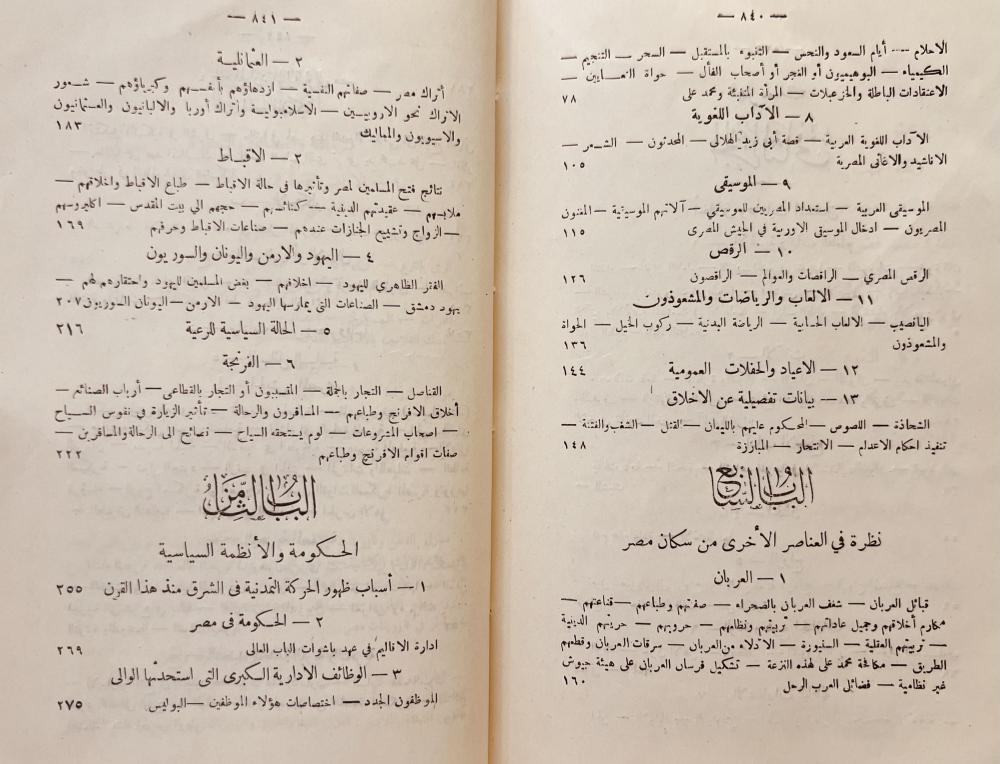 — ٨٤٠ —
الاحلام — أيام السعود والنحس — التنبوء بالمستقبل — السحر — التنجيم —
الكيمياء — البوهيميون أو الغجر أو أصحاب الفأل — حواة الثعابين —
الاعتقادات الباطلة والخزعبلات — المرأة المتنبئة ومحمد على ٧٨
٨ — الآداب اللغوية
الاداب اللغوية العربية — قصة أبى زيد الهلالى — المحدثون — الشعر —
الاناشيد والاغانى المصرية ١٠٥
٩ — الموسيقى
الموسيقى العربية — استعداد المصريين للموسيقى — آلاتهم الموسيقية — المغنون
المصريون — ادخال الموسيقى الاوربية في الجيش المصرى ١١٥
١٠ — الرقص
الرقص المصري — الراقصات والعوالم — الراقصون ١٢٦
١١ — الالعاب والرياضات والمشعوذون
اليانصيب — الالعاب الحسابية — الرياضة البدنية — ركوب الخيل — الحواة
والمشعوذون ١٣٦
١٢ — الاعياد والحفلات العمومية ١٤٤
١٣ — بيانات تفصيلية عن الاخلاق
الشحاذة — اللصوص — المحكوم عليهم بالليمان — القتل — الشغب والفتنة —
تنفيذ احكام الاعدام — الانتحار — المبارزة ١٤٨
الباب السابع
نظرة في العناصر الأخرى من سكان مصر
١ — العربان
قبائل العربان — شغف العربان بالصحراء — صفتهم وطباعهم — قناعتهم —
مكارم أخلاقهم وجميل عاداتهم — تربيتهم ونظامهم — حروبهم — حريتهم الدينية
— تربيتهم العقلية — السنيورة — الادلاء من العربان — سرقات العربان وقطعهم
الطريق — مكافحة محمد على لهذه النزعة — تشكيل فرسان العربان على هيئة جيوش
غير نظامية — فضائل العرب الرحل ١٦٠
— ٨٤١ —
٢ — العثمانلية
أتراك مصر — صفاتهم النفسية — ازدهاؤهم بأنفسهم وكبرياؤهم — شعور
الاتراك نحو الاروبيين — الاسلامبولية وأتراك أوربا والالبانيون والعثمانيون
والاسيويون والمماليك ١٨٣
٣ — الاقباط
نتائج فتح المسلمين لمصر وتأثيرها في حالة الاقباط — طباع الاقباط واخلاقهم —
ملابسهم — عقيدتهم الدينية — كنائسهم — حجهم الي بيت المقدس — اكليروسهم
— الزواج وتشييع الجنازات عندهم — صناعات الاقباط وحرفهم ١٦٩
٤ — اليهود والارمن واليونان والسوريون
الفقر الظاهري لليهود — اخلاقهم — بغض المسلمين لليهود واحتقارهم لهم —
يهود دمشق — الصناعات التى يمارسها اليهود — الارمن — اليونان السوريون ٢٠٧
٥ — الحالة السياسية للرعية ٢١٦
٦ — الفرنجة
القناصل — التجار بالجملة — المتسببون أو التجار بالقطاعى — أرباب الصنائع —
أخلاق الافرنج وطباعهم — المسافرون والرحالة — تأثير الزيارة في نفوس السياح
— اصحاب المشروعات — لوم يستحقه السياح — نصائح الى الرحالة والمسافرين —
صفات اقوام الافرنج وطباعهم ٢٢٢
الباب الثامن
الحكومة والأنظمة السياسية
١ — أسباب ظهور الحركة التمدنية فى الشرق منذ هذا القرن ٢٥٥
٢ — الحكومة فى مصر
ادارة الاقاليم في عهد باشوات الباب العالى ٢٦٩
٣ — الوظائف الادارية الكبرى التى استحدثها الوالى
الموظفون الجدد — اختصاصات هؤلاء الموظفين — البوليس ٢٧٥